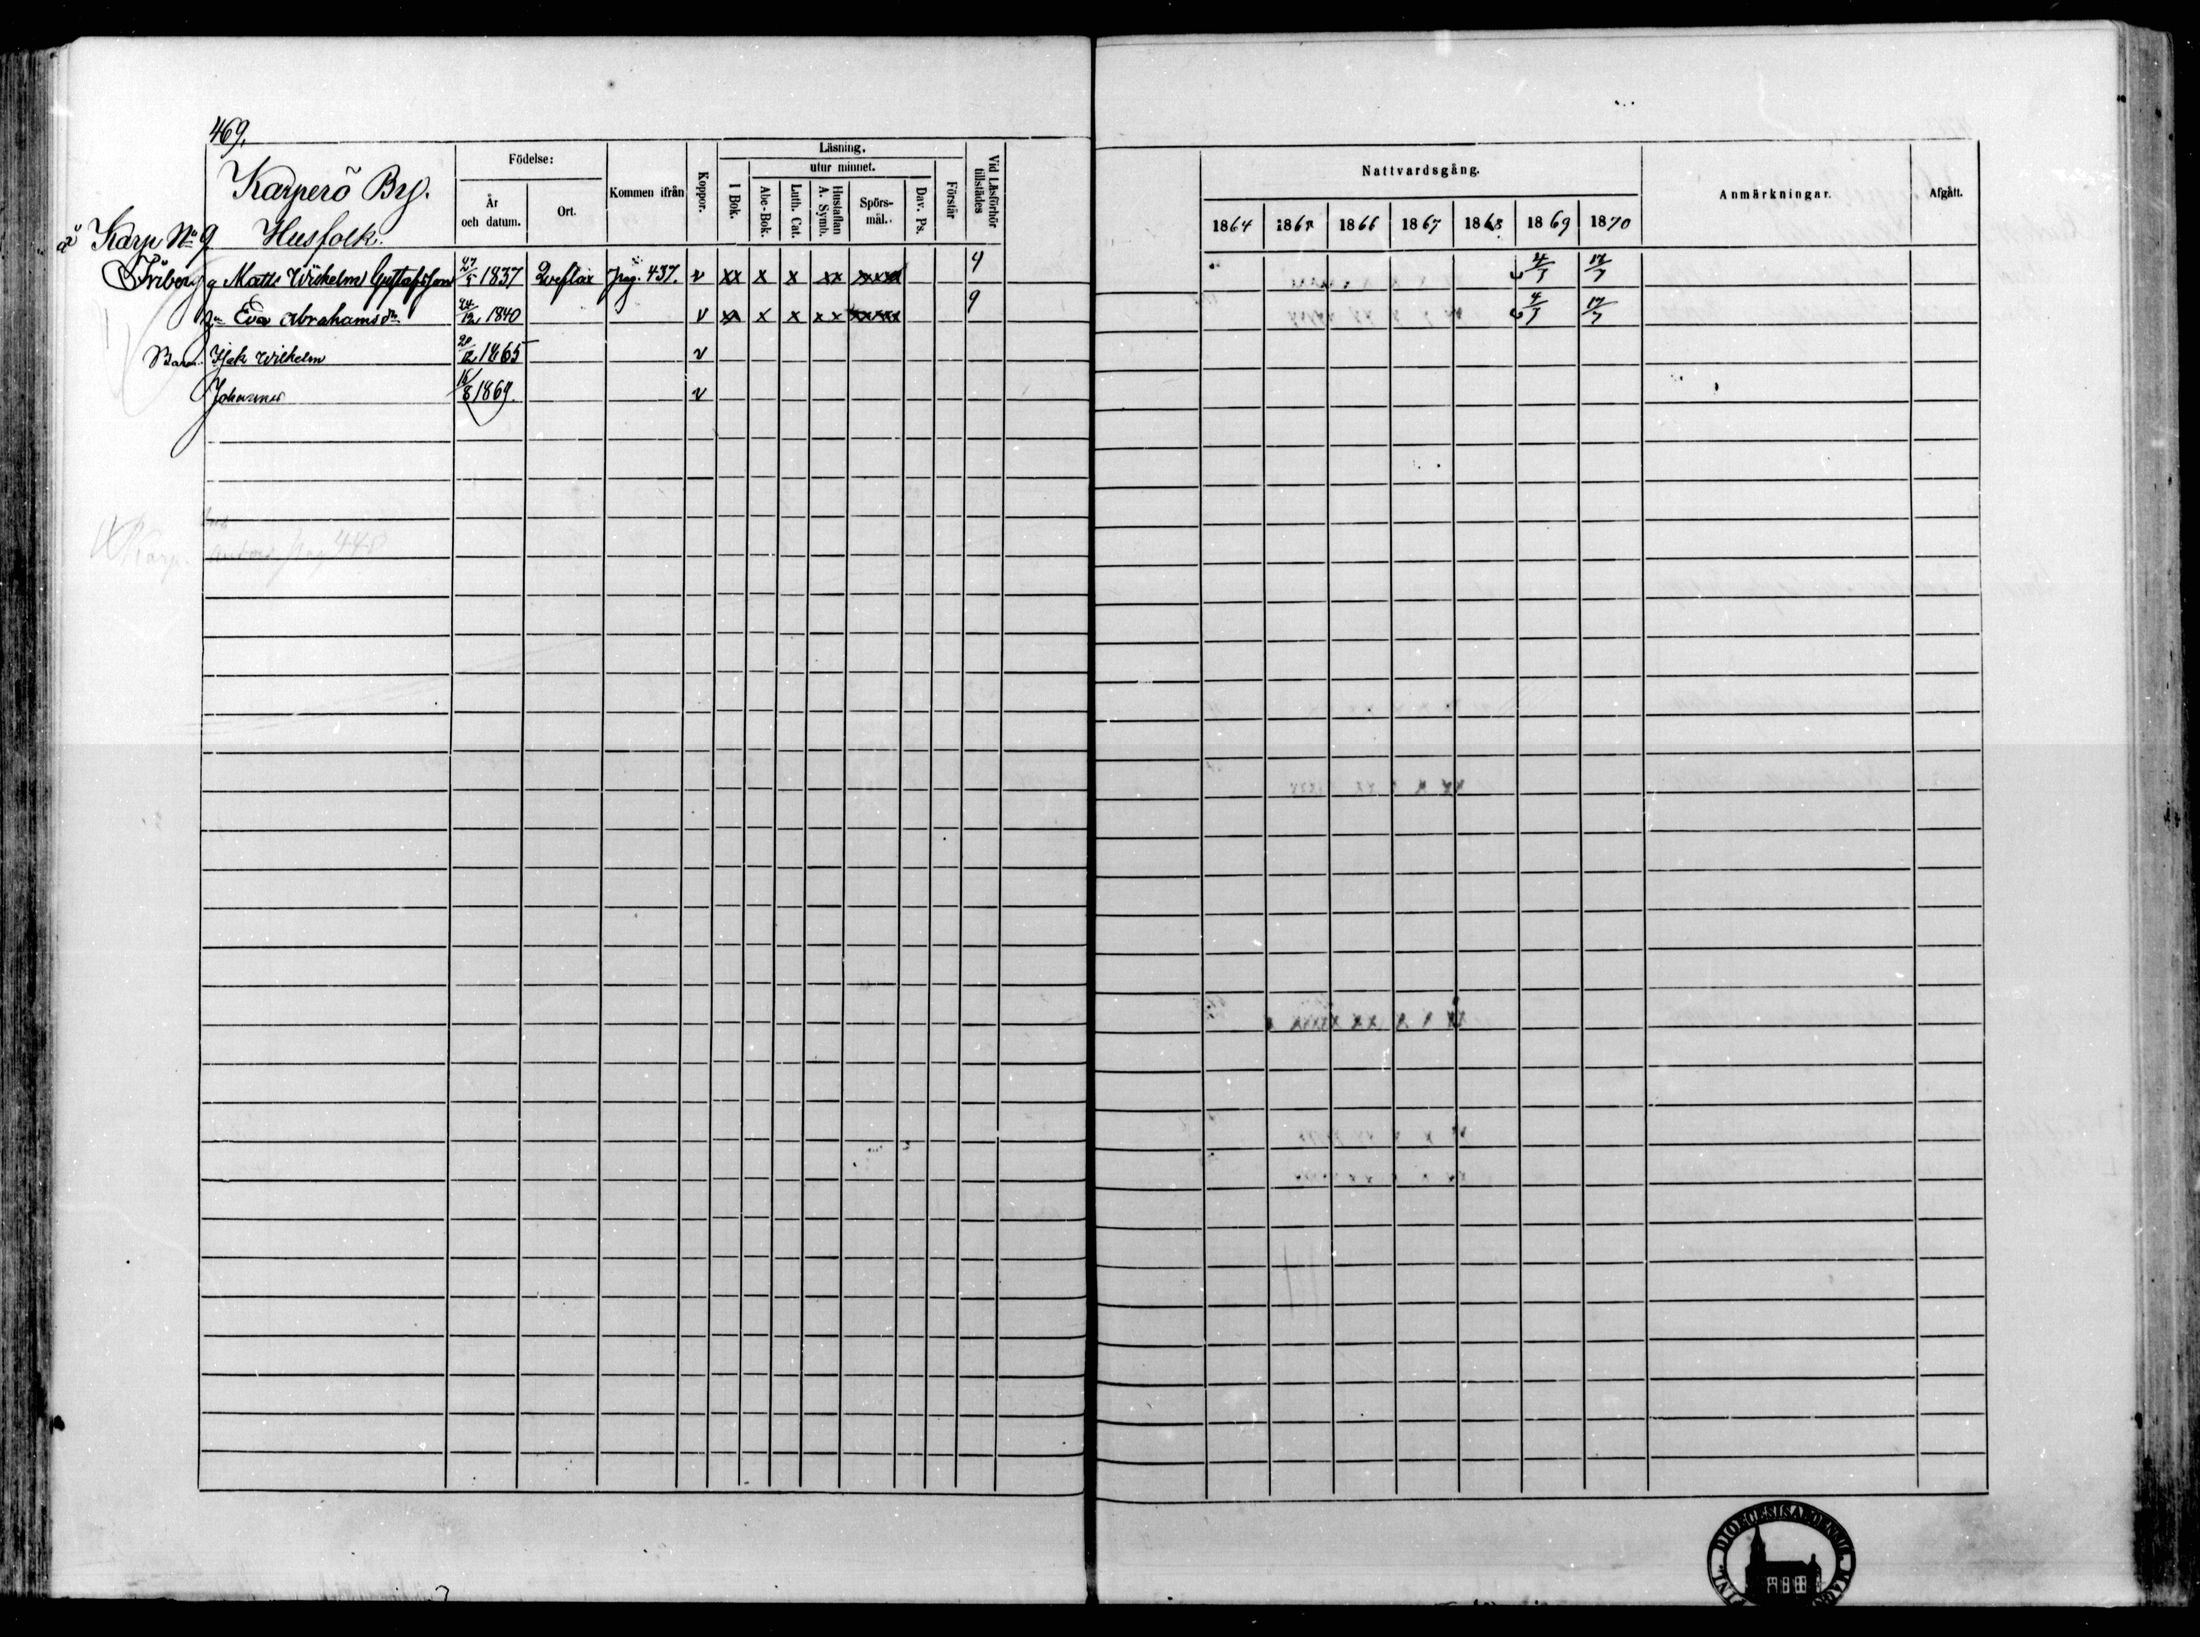 469.
Karperö By.
å Karp No 9 Husfolk.
Födelse:
År och datum.
Ort.
Kommen ifrån
Koppor.
Läsning.
I Bok.
utur minnet.
Abc-Bok.
Luth. Cat.
Hustaflan A. Symb.
Spörsmål.
Dav. Ps.
Förstår
Vid Läsförhör tillstädes
Nattvardsgång.
1864 1865 1866 1867 1868 1869 1870
Anmärkningar.
Afgått.
Friberg Matts Wilhelm Gustafsson 27/5 1837 Qveflax pag. 437. v xx x x xx xxxx 9 4/7 17/7
Eva Abrahamsdr 24/12 1840 v xx x x xx xxxxx 9 4/7 17/7
Barn: Isak Wilhelm 20/12 1865 v
Johannes 16/8 1869. v
Karp. Anders pag 448
DIOECESIS ABOENSIS